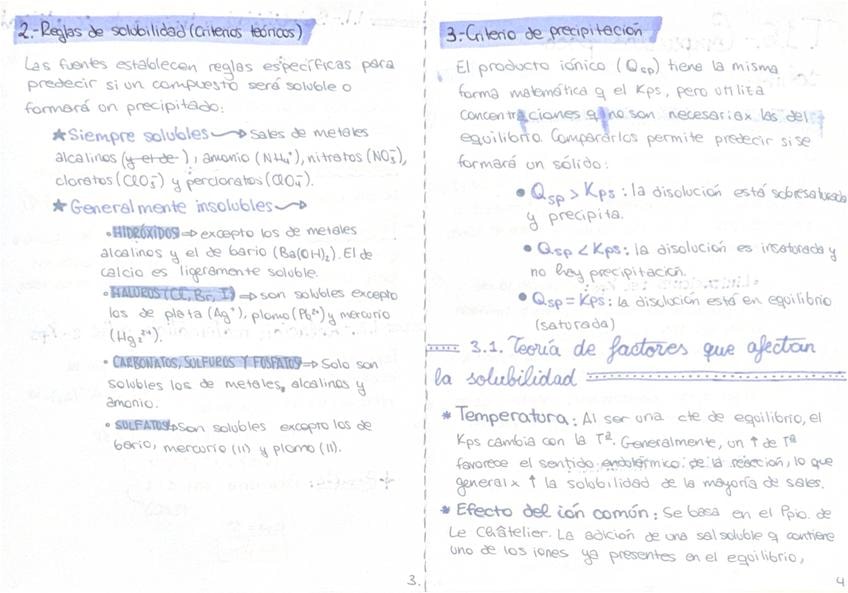 2.-Reglas de solubilidad (Criterios teóricos)
Las fuentes establecen reglas específicas para
predecir si un compuesto será soluble o
formará un precipitado:
★Siempre solubles → sales de metales
alcalinos (y el de ), amonio (NH₄⁺), nitratos (NO₃⁻),
cloratos (ClO₃⁻) y percloratos (ClO₄⁻).
★Generalmente insolubles →
• HIDRÓXIDOS ⇒ excepto los de metales
alcalinos y el de bario (Ba(OH)₂). El de
calcio es ligeramente soluble.
• HALUROS (Cl, Br, I) ⇒ son solubles excepto
los de plata (Ag⁺), plomo (Pb²⁺) y mercurio
(Hg₂²⁺).
• CARBONATOS, SULFUROS Y FOSFATOS ⇒ Solo son
solubles los de metales, alcalinos y
amonio.
• SULFATOS ⇒ son solubles excepto los de
bario, mercurio (II) y plomo (II).
3.
3.-Criterio de precipitación
El producto iónico (Qsp) tiene la misma
forma matemática q el Kps, pero utiliza
concentraciones q no son necesariax las del
equilibrio. Compararlos permite predecir si se
formará un sólido:
• Qsp > Kps: la disolución está sobresaturada
y precipita.
• Qsp < Kps: la disolución es insaturada y
no hay precipitación.
• Qsp = Kps: la disolución está en equilibrio
(saturada)
3.1. Teoría de factores que afectan
la solubilidad
* Temperatura: Al ser una cte de equilibrio, el
Kps cambia con la Tª. Generalmente, un ↑ de Tª
favorece el sentido endotérmico de la reacción, lo que
general x ↑ la solubilidad de la mayoría de sales.
* Efecto del ión común: Se basa en el Ppio. de
Le Châtelier. La adición de una sal soluble q contiene
uno de los iones ya presentes en el equilibrio,
4